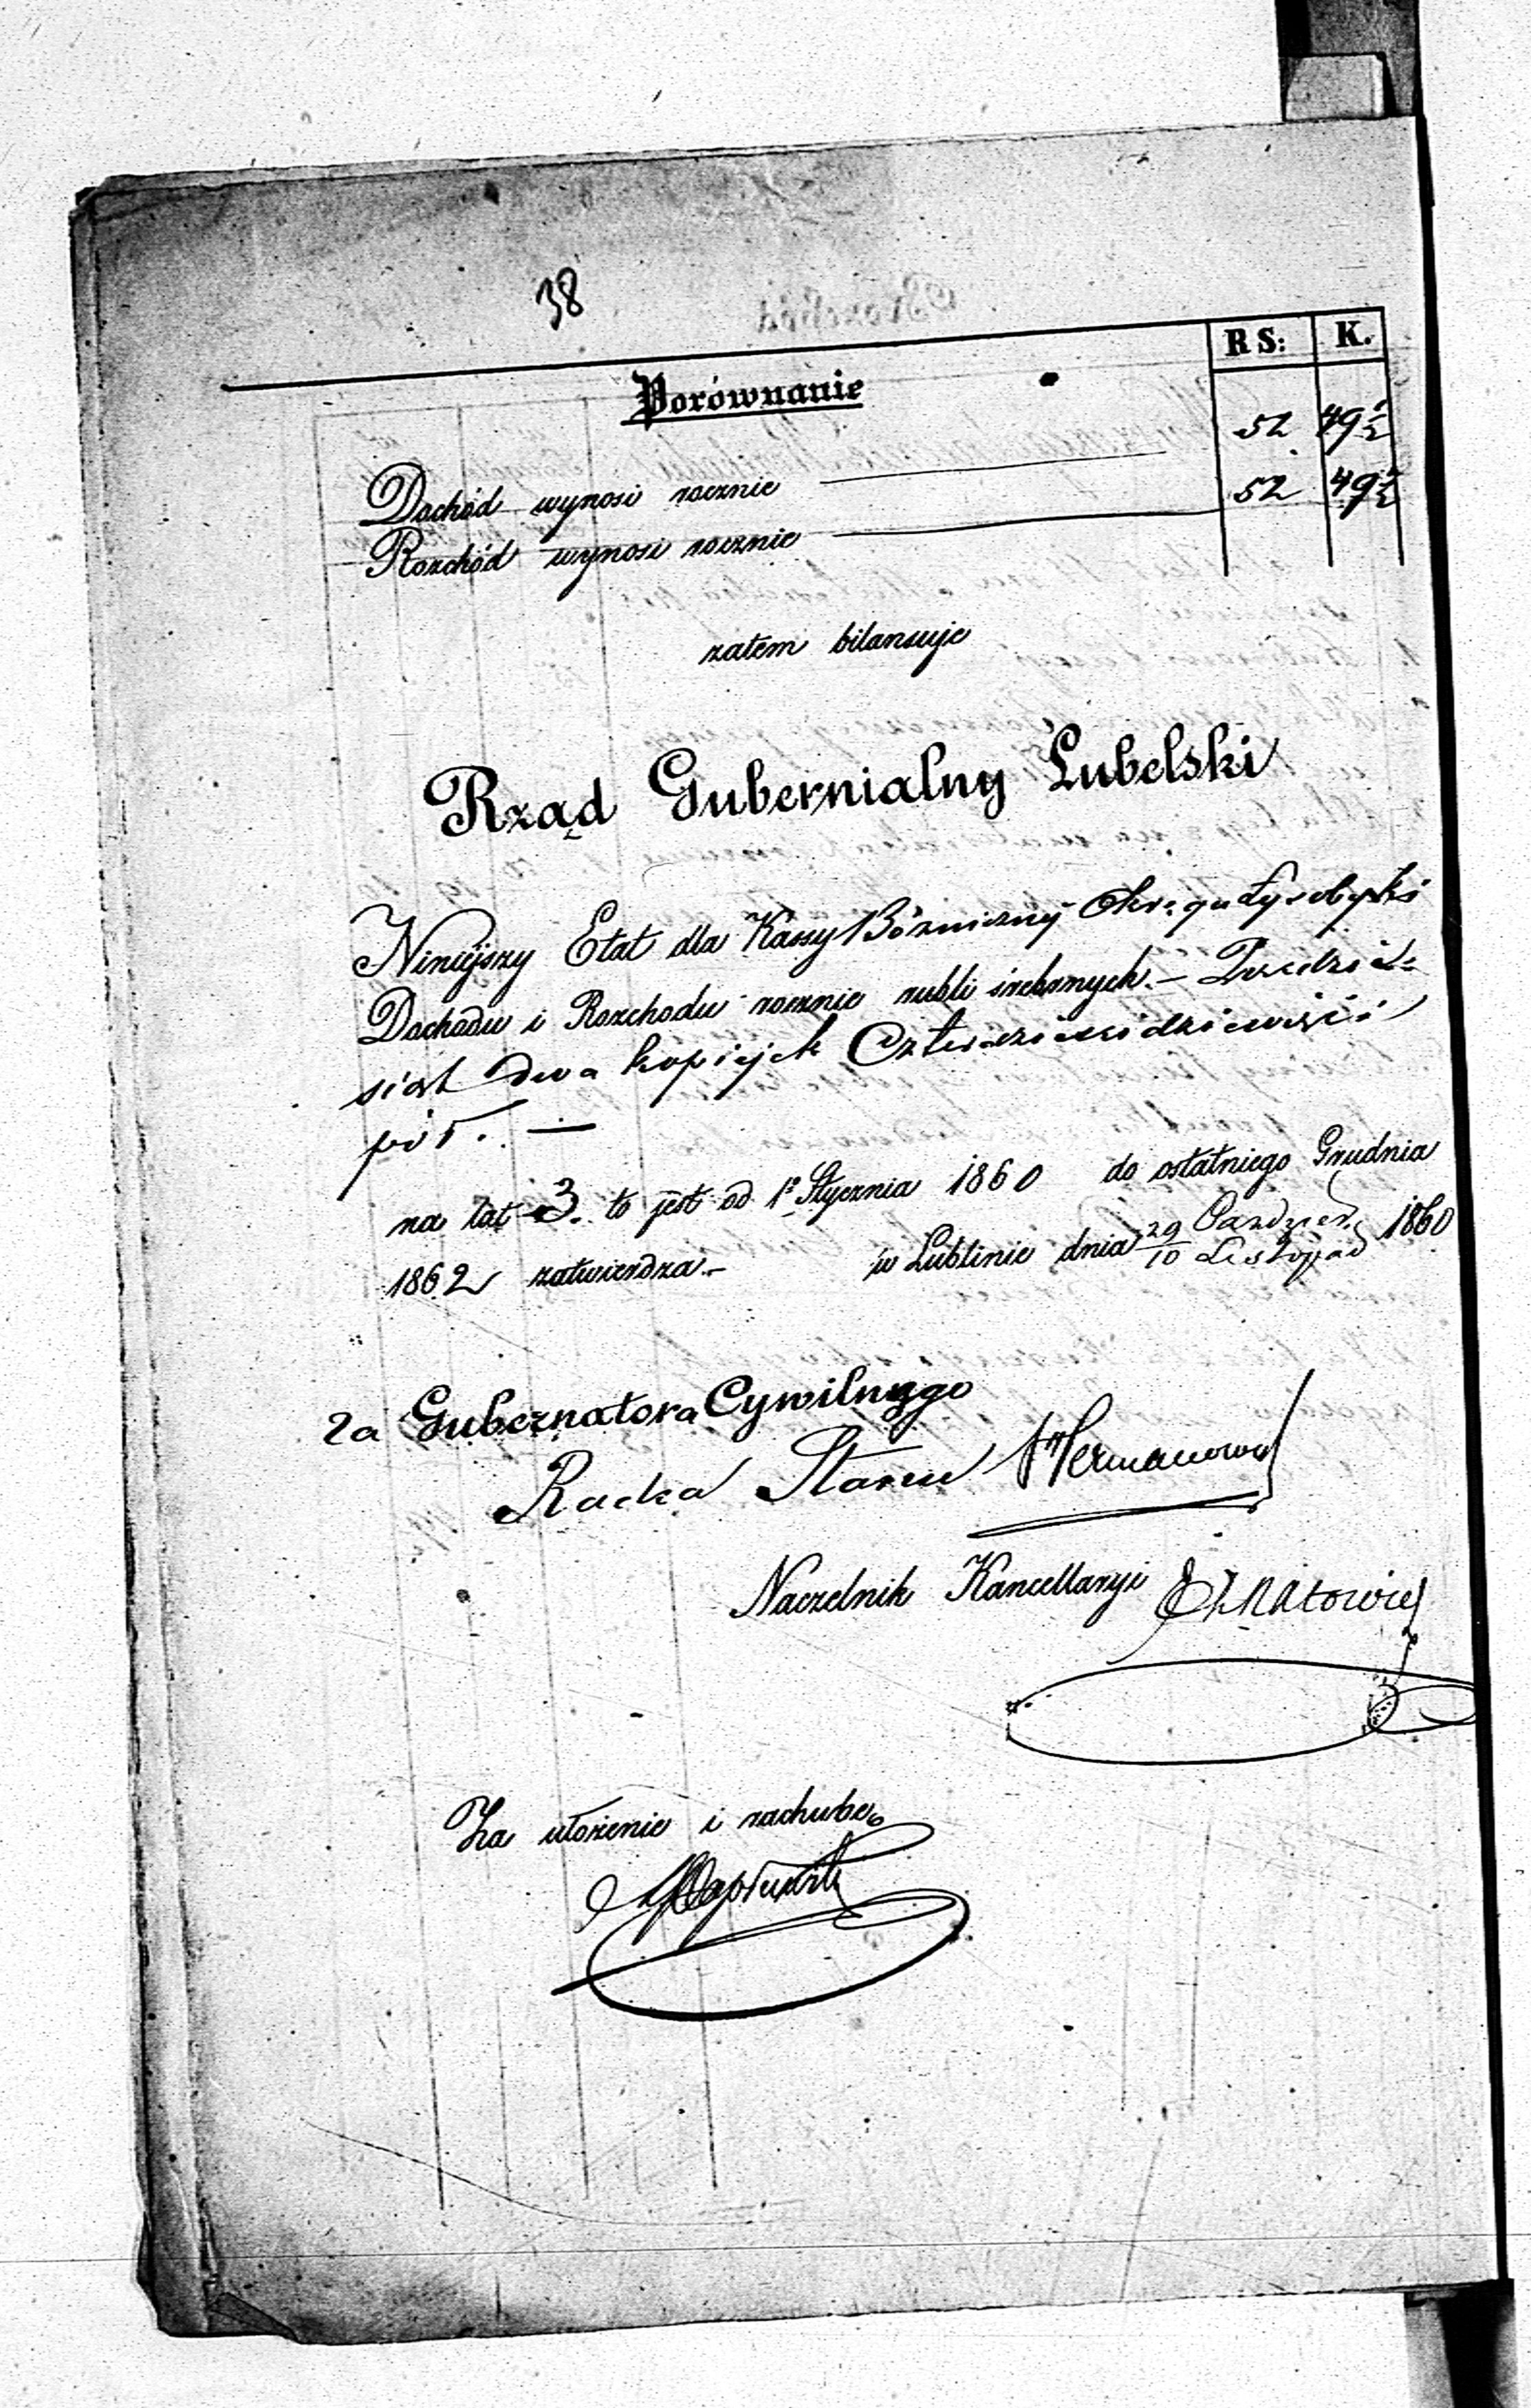 38
RS: K.
Porównanie
Dochód wynosi rocznie 52 49½
Rozchód wynosi rocznie 52 49½
zatem bilansuje
Rząd Gubernialny Lubelski
Niniejszy Etat dla Kassy Bóżniczny Okręgu Łysobyki
Dochodu i Rozchodu rocznie rubli srebrnych. – Pięćdzie
siąt dwa kopiejek Czterdzieścidziewięć i
pół. . —
na lat 3. to jest od 1º Stycznia 1860 do ostatniego Grudnia
1862 zatwierdza. – w Lublinie dnia 29/10 Paździer./Listopad 1860
za Gubernatora Cywilnego
Radca Stanu
Naczelnik Kancellaryi
Za ułożenie i rachubę